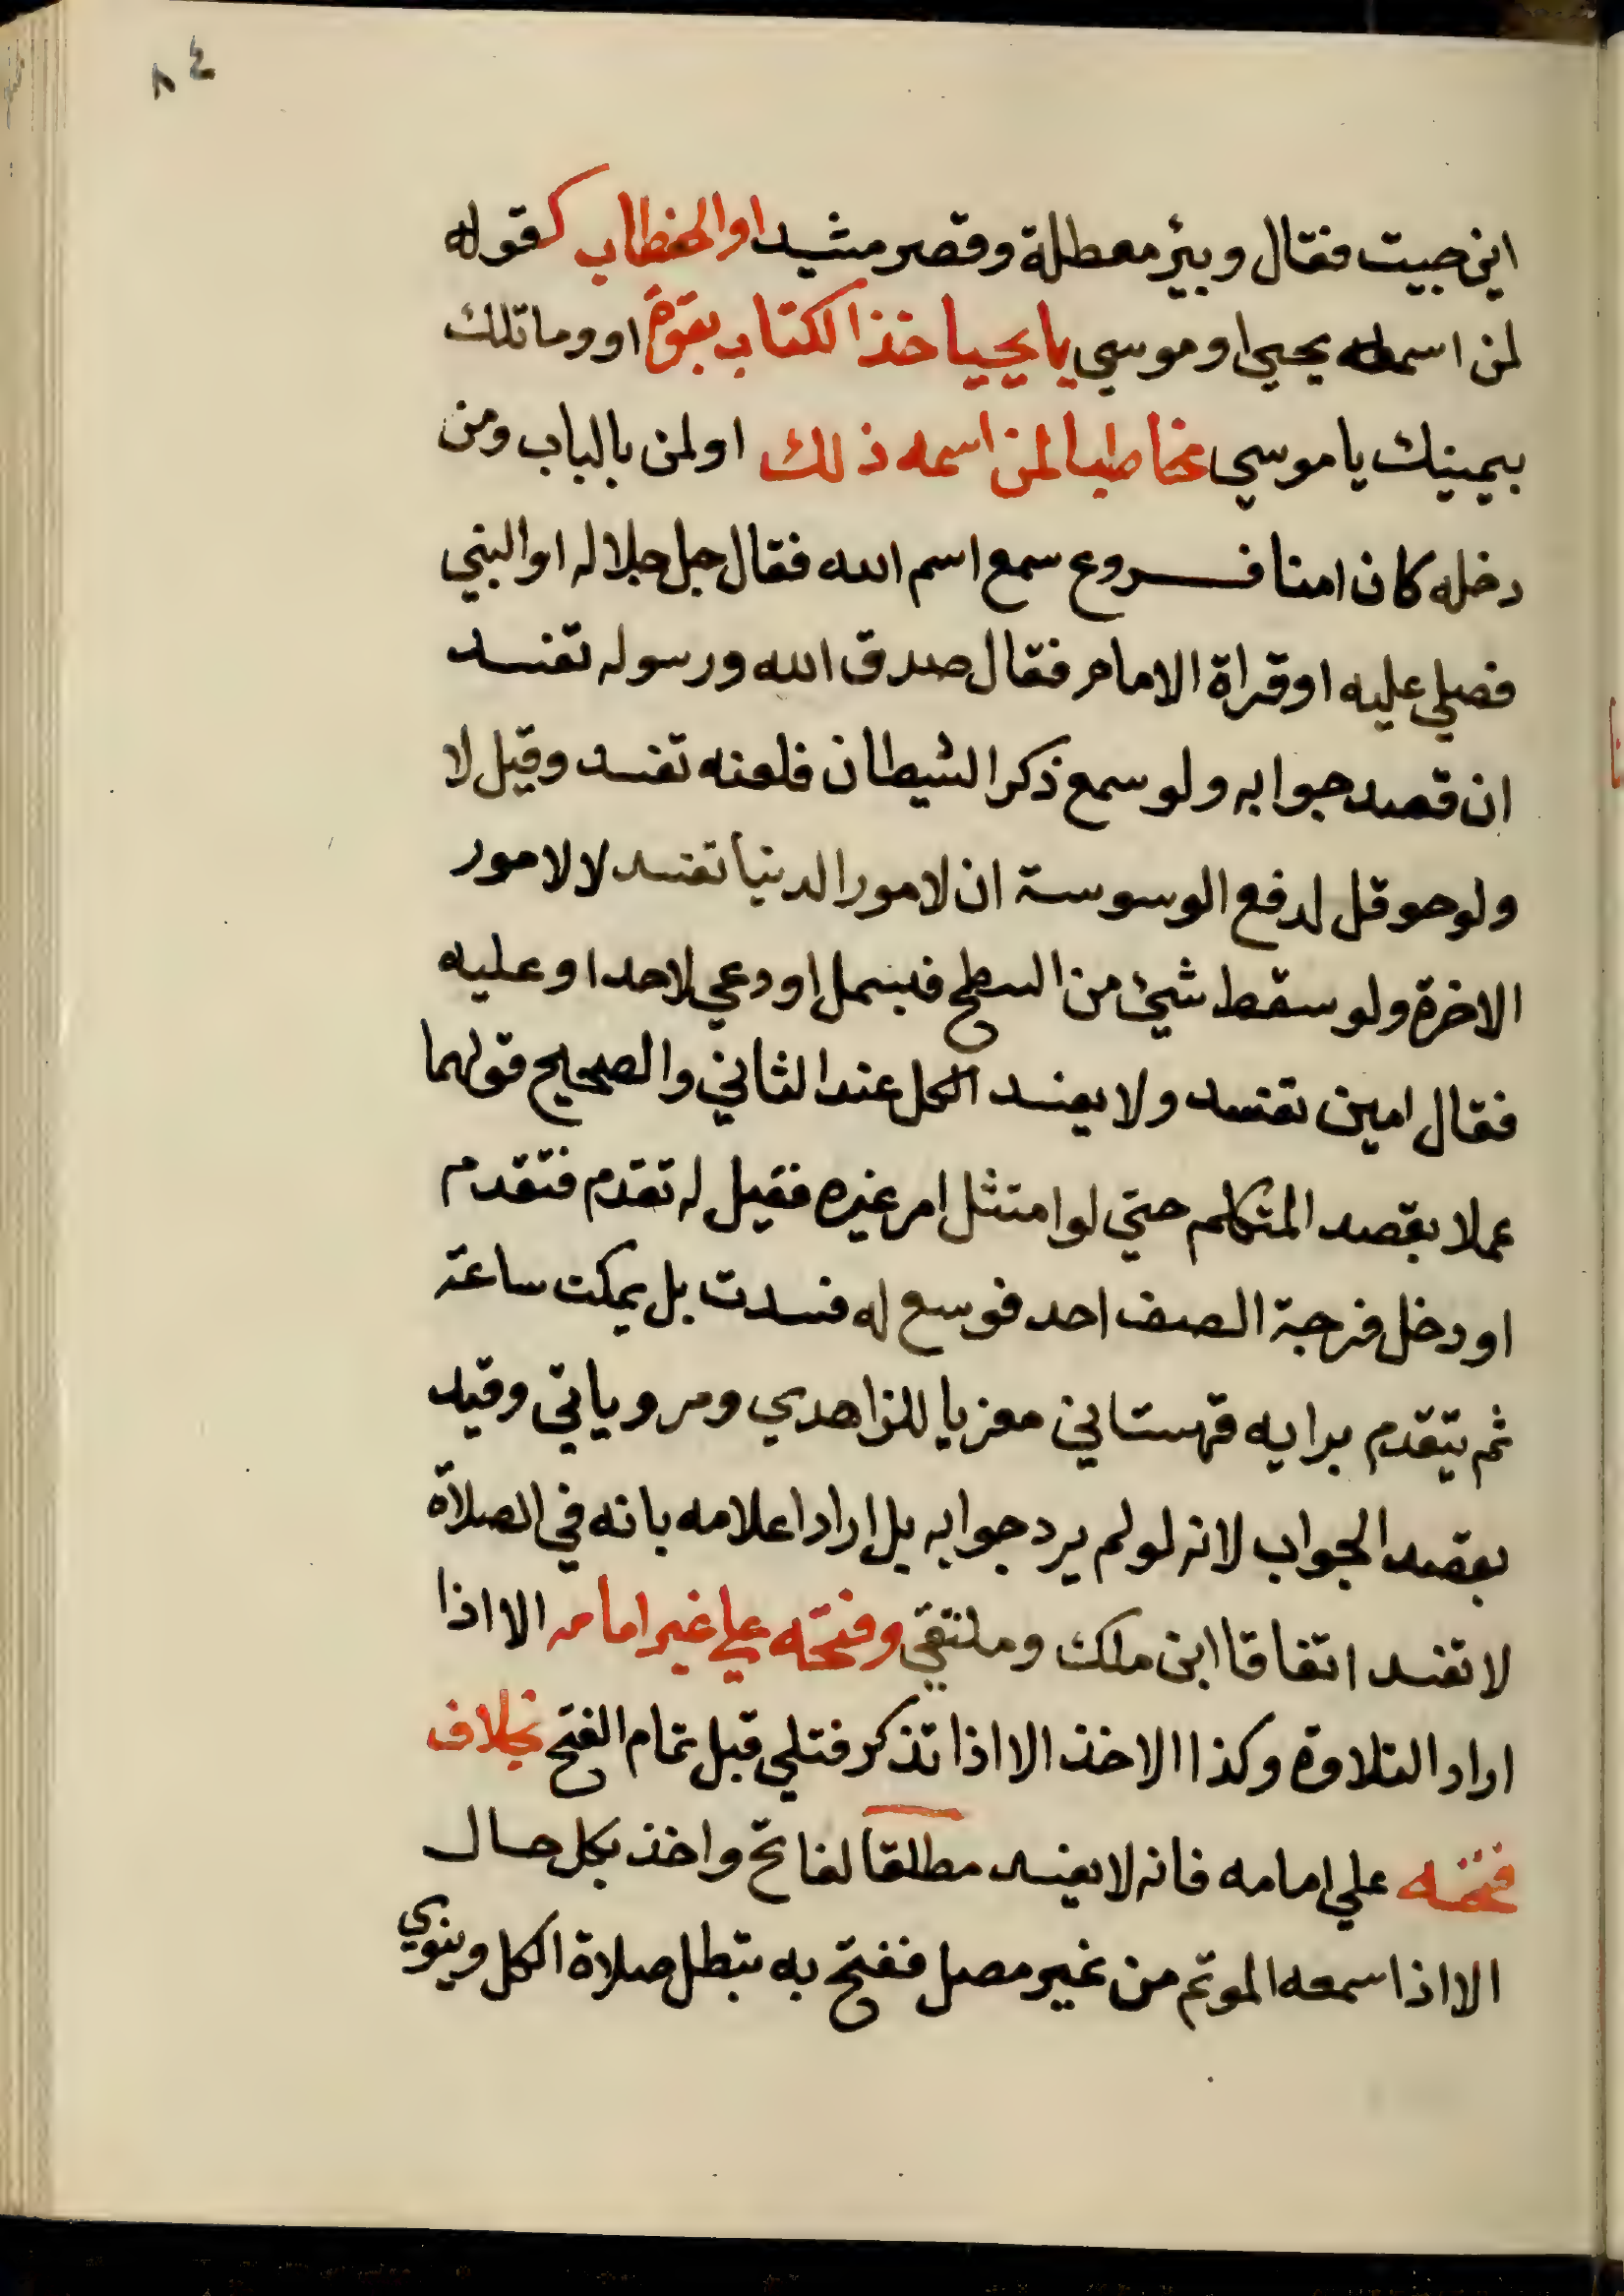 ٨٤
اين جيت فقال وبيئر معطلة وقصر مشيد او الخطاب كقوله
لمن اسمه يحيى او موسي يا يحييا خذ الكتاب بقوة او وما تلك
بيمينك يا موسي مخاطبا لمن اسمه ذلك او لمن بالباب ومن
دخله كان امنا فروع سمع اسم الله فقال جل جلاله او النبي
فصلي عليه او قراة الامام فقال صدق الله ورسوله تفسد
ان قصد جوابه ولو سمع ذكر الشيطان فلعنه تفسد وقيل لا
ولو حوقل لدفع الوسوسة ان لامور الدنيا تفسد لا لامور
الاخرة ولو سقط شيئ من السطح فبسمل او دعي لاحد او عليه
فقال امين تفسد ولا يفسد الكل عند الثاني والصحيح قولهما
عملا بقصد المتكلم حتي لو امتثل امر غيره فقيل له تقدم فتقدم
او دخل فرجة الصف احد فوسع له فسدت بل يمكث ساعة
ثم يتقدم برايه قهستاني معزيا للزاهدي ومر وياتي وقيد
بقصد الجواب لانه لو لم يرد جوابه بل اراد اعلامه بانه في الصلاة
لا تفسد اتفاقا ابن ملك وملتقي وفتحه علي غير امامه الا اذا
اراد التلاوة وكذا الاخذ الا اذا تذكر فتلي قبل تمام الفتح بخلاف
فتحه علي امامه فانه لا يفسد مطلقا لفاتح واخذ بكل حال
الا اذا سمعه الموتم من غير مصل ففتح به تبطل صلاة الكل وينوي